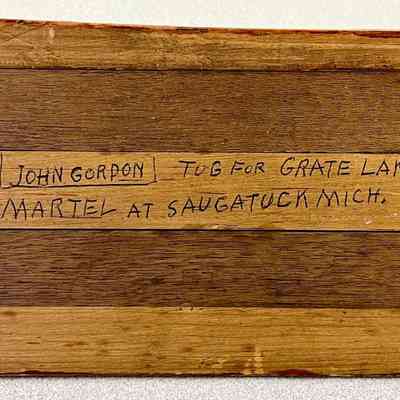 JOHN GORDON TUG FOR GRATE LAK
MARTEL AT SAUGATUCK MICH.